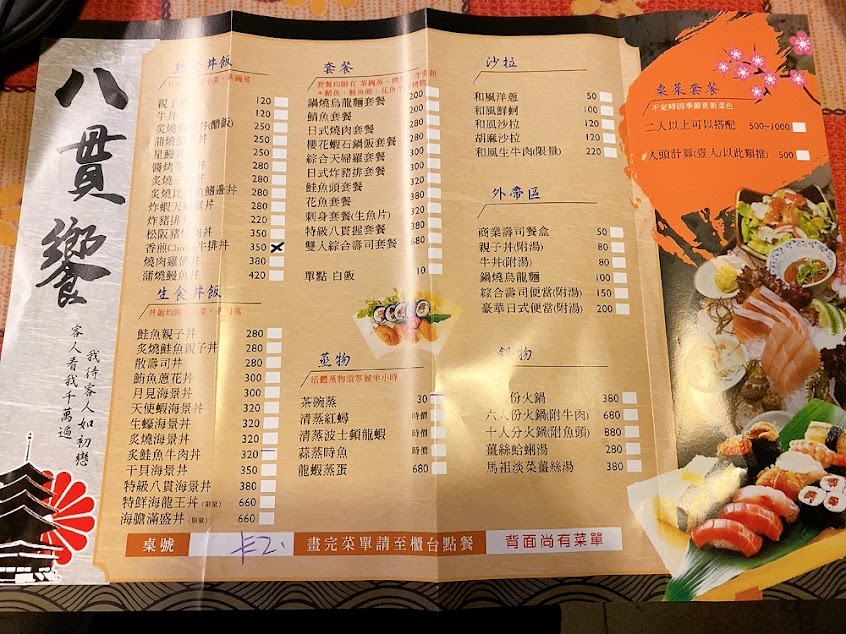 八貫饗
我待客人如初戀
客人看我千萬遍
熟食丼飯
小菜、茶碗蒸
親子丼 120
牛丼 120
炙燒 丼(醋飯) 250
蒲燒 丼 250
星鰻 250
醬烤牛 280
炙燒 丼 250
炙燒比目魚鰭邊丼 280
炸蝦天婦羅丼 280
炸豬排丼 220
松阪豬 丼 350
香煎Choice牛排丼 350
燒肉雞 丼 380
蒲燒鰻魚丼 420
生食丼飯
丼飯均附 小菜、 蒸
鮭魚親子丼 280
炙燒鮭魚親子丼 280
散壽司丼 280
鮪魚蔥花丼 300
月見海景丼 300
天使蝦海景丼 320
生蠔海景丼 320
炙燒海景丼 320
炙鮭魚牛肉丼 320
干貝海景丼 350
特級八貫海景丼 380
特鮮海龍王丼(限量) 660
海膽滿盛丼(限量) 660
套餐
套餐均附有 茶碗蒸、烤
鍋燒烏龍麵套餐 200
鯖魚套餐 200
日式燒肉套餐 200
櫻花蝦石鍋飯套餐 200
綜合天婦羅套餐 280
日式炸豬排套餐 280
鮭魚頭套餐 320
花魚套餐 380
刺身套餐(生魚片) 480
特級八貫握套餐 680
雙人綜合壽司套餐 680
單點 白飯 10
蒸物
活體蒸物須等候半小時
茶碗蒸 30
清蒸紅蟳 時價
清蒸波士頓龍蝦 時價
蒜蒸時魚 時價
龍蝦蒸蛋 680
沙拉
和風洋蔥 50
和風鮮蚵 100
和風沙拉 120
胡麻沙拉 120
和風生牛肉(限量) 220
外帶區
商業壽司餐盒 50
親子丼(附湯) 80
牛丼(附湯) 80
鍋燒烏龍麵 100
綜合壽司便當(附湯) 150
豪華日式便當(附湯) 200
鍋物
份火鍋 380
六人份火鍋(附牛肉) 680
十人分火鍋(附魚頭) 880
薑絲蛤蜊湯 280
馬祖淡菜薑絲湯 380
桌菜套餐
不定時因季節更新菜色
二人以上可以搭配 500~1000
人頭計算(壹人/以此類推) 500
桌號
卡2.
畫完菜單請至櫃台點餐
背面尚有菜單